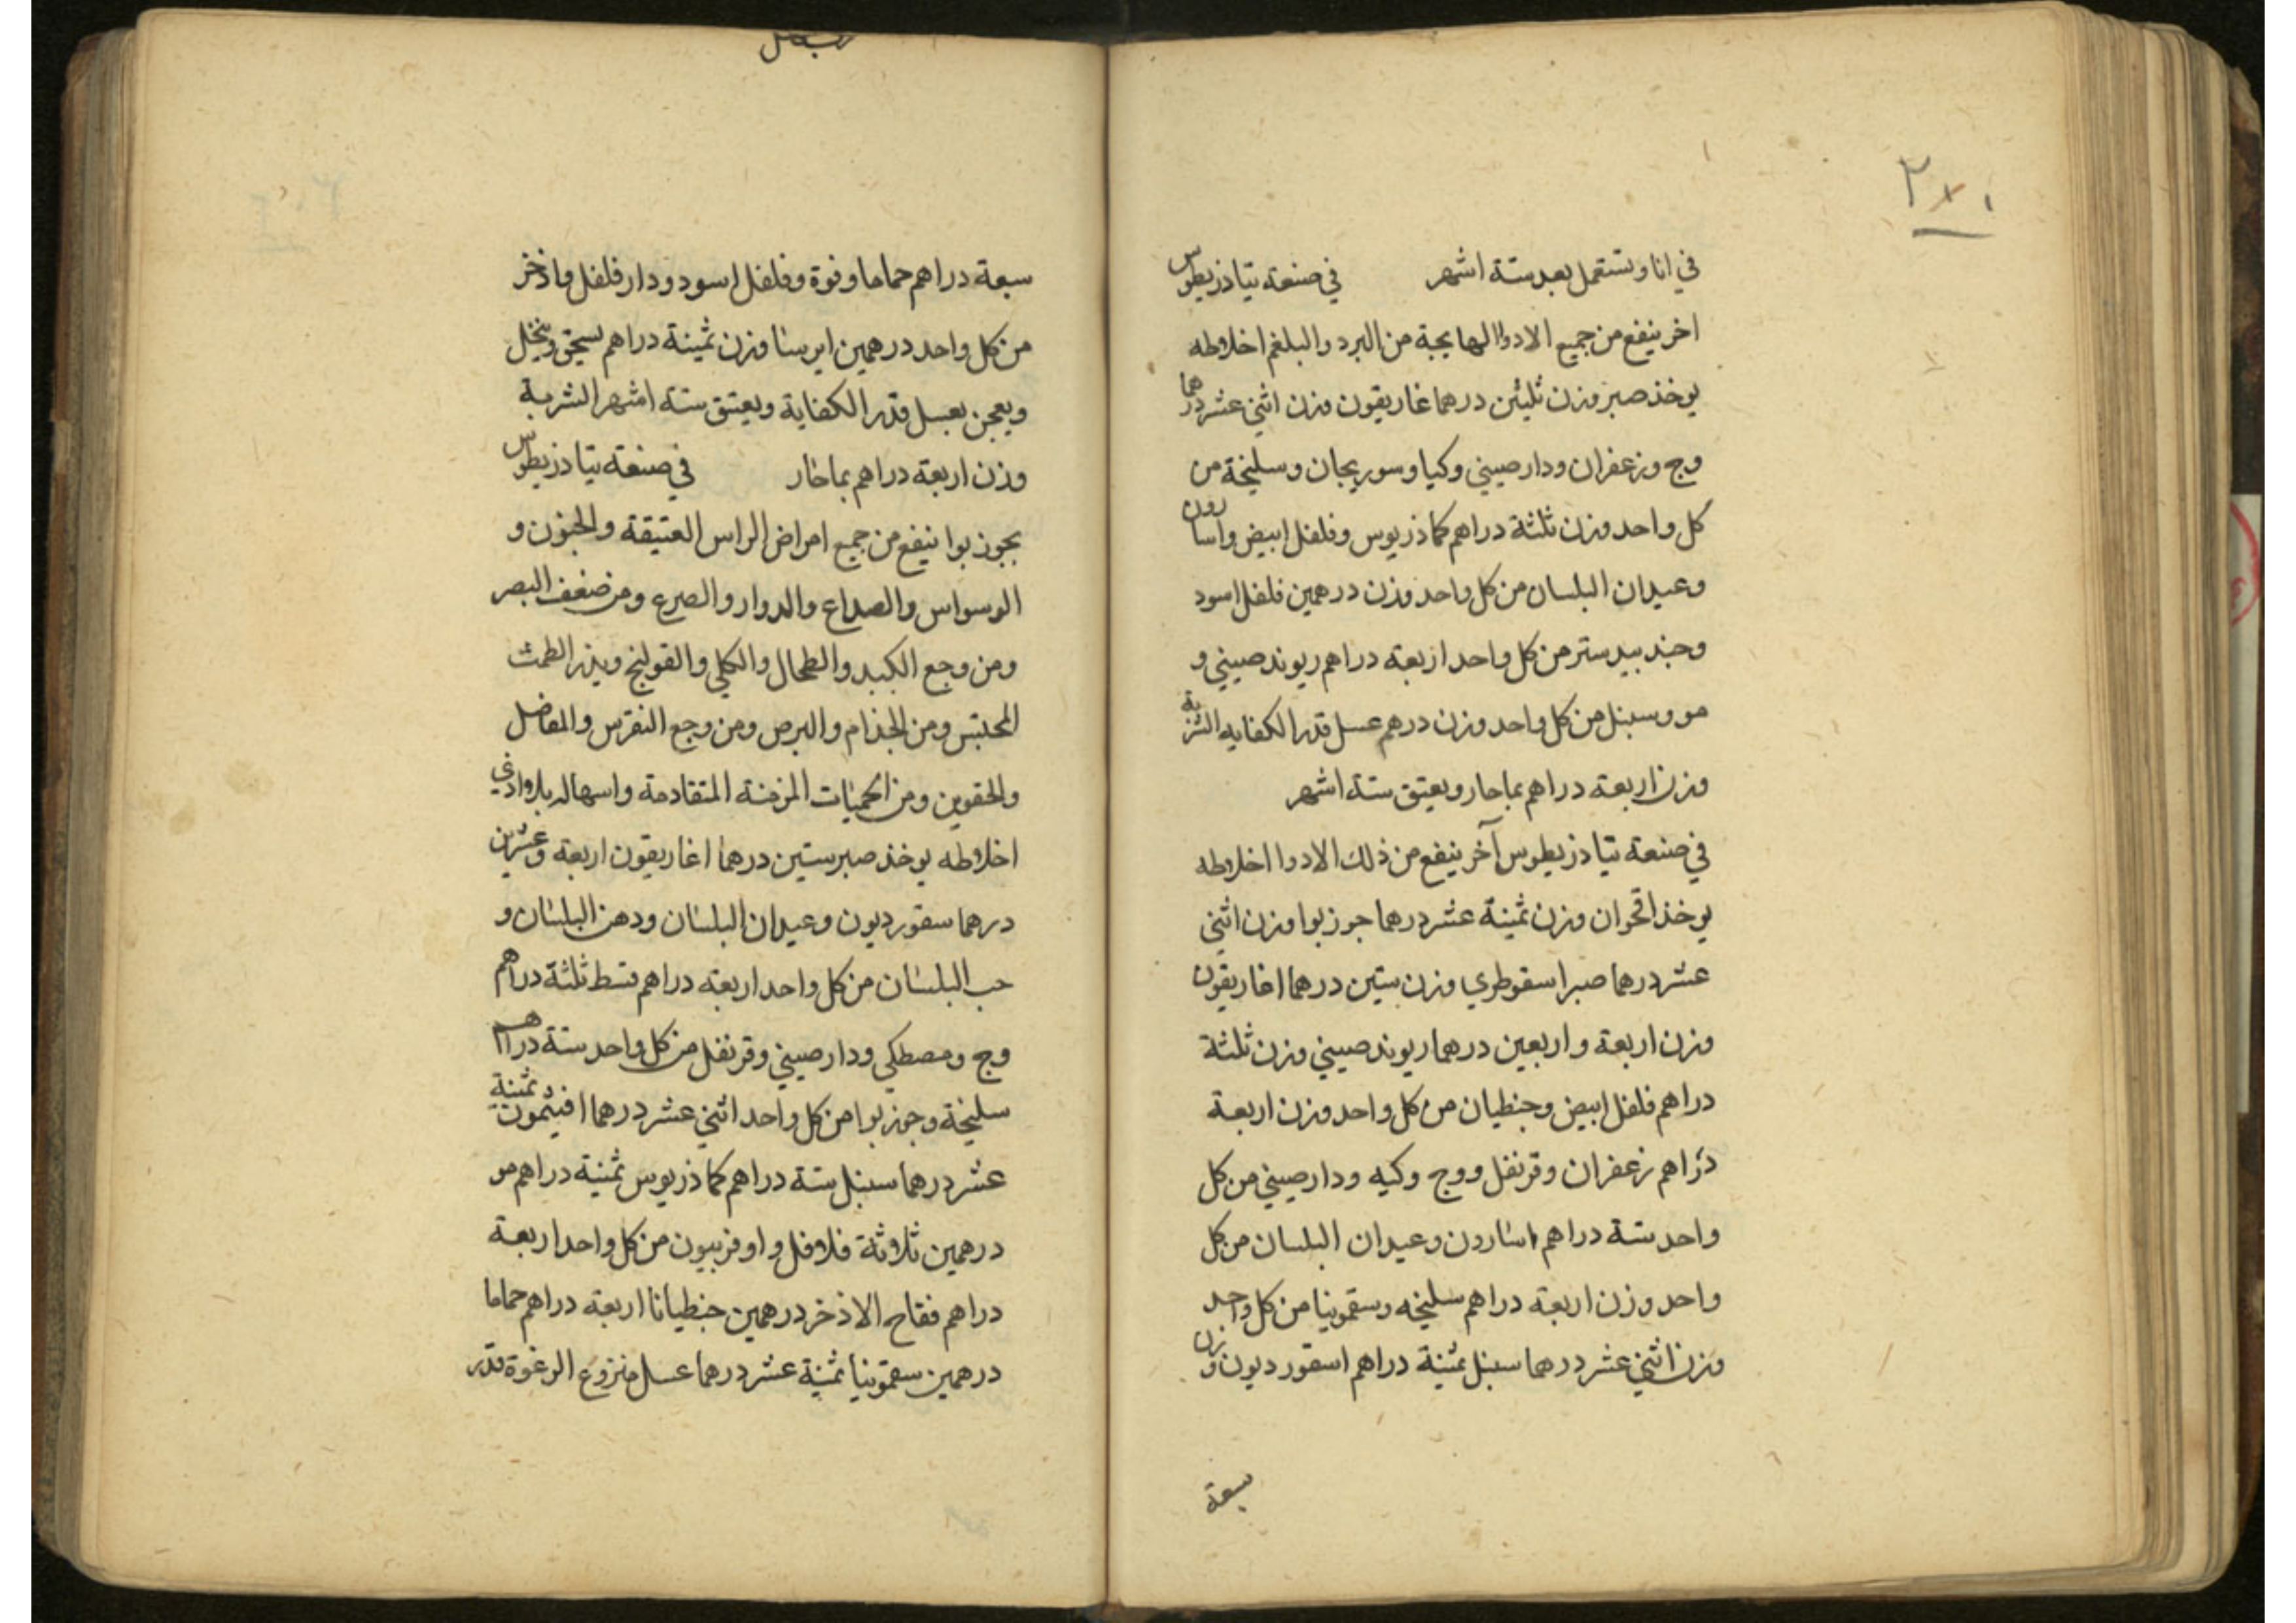 ٢٨٠
في انا ويستعمل بعد ستة اشهر في صنعة تيادزيطوس
اخر ينفع من جميع الادوا الهايجة من البرد والبلغم اخلاطه
يوخذ صبر وزن ثلثين درهما غاريقون وزن اثني عشر درهما
وج وزعفران ودارصيني وكيا وسوريجان وسليخة من
كل واحد وزن ثلثة دراهم كماذريوس وفلفل ابيض واسارون
وعيدان البلسان من كل واحد وزن درهمين فلفل اسود
وجندبيدستر من كل واحد اربعة دراهم ريوند صيني و
مو وسنبل من كل واحد وزن درهم عسل قدر الكفايه الشربة
وزن اربعة دراهم بماحار ويعتق ستة اشهر
في صنعة تيادزيطوس آخر ينفع من ذلك الادوا اخلاطه
يوخذ اقحوان وزن ثمنية عشر درهما جوزبوا وزن اثني
عشر درهما صبر اسقوطري وزن ستين درهما اغاريقون
وزن اربعة واربعين درهما ريوند صيني وزن ثلثة
دراهم فلفل ابيض وجنطيان من كل واحد وزن اربعة
دراهم زعفران وقرنفل ووج وكيه ودارصيني من كل
واحد ستة دراهم اسارون وعيدان البلسان من كل
واحد وزن اربعة دراهم سليخه وسقمونيا من كل واحد
وزن اثني عشر درهما سنبل ثمنية دراهم اسقورديون وزن
سبعة
سبعة دراهم حماما وفوة وفلفل اسود ودارفلفل واذخر
من كل واحد درهمين ايرسا وزن ثمينة دراهم يسحق وينخل
ويعجن بعسل قدر الكفاية ويعتق ستة اشهر الشربة
وزن اربعة دراهم بماحار في صنعة تيادزيطوس
بجوزبوا ينفع من جميع امراض الراس العتيقة والجنون و
الوسواس والصداع والدوار والصرع ومن ضعف البصر
ومن وجع الكبد والطحال والكلي والقولنج ويدر الطمث
المحتبس ومن الجذام والبرص ومن وجع النقرس والمفاصل
والحقوين ومن الحميات المزمنة المتقادمة واسهاله بلا اذي
اخلاطه يوخذ صبر ستين درهما اغاريقون اربعة وعشرين
درهما سقورديون وعيدان البلسان ودهن البلسان و
حب البلسان من كل واحد اربعة دراهم قسط ثلثة دراهم
وج ومصطكي ودارصيني وقرنفل من كل واحد ستة دراهم
سليخة وجوزبوا من كل واحد اثني عشر درهما افيثمون ثمنية
عشر درهما سنبل ستة دراهم كماذريوس ثمنية دراهم مو
درهمين ثلاوثة فلافل واوفربيون من كل واحد اربعة
دراهم فقاح الاذخر درهمين جنطيانا اربعة دراهم حماما
درهمين سقمونيا ثمنية عشر درهما عسل منزوع الرغوة قدر